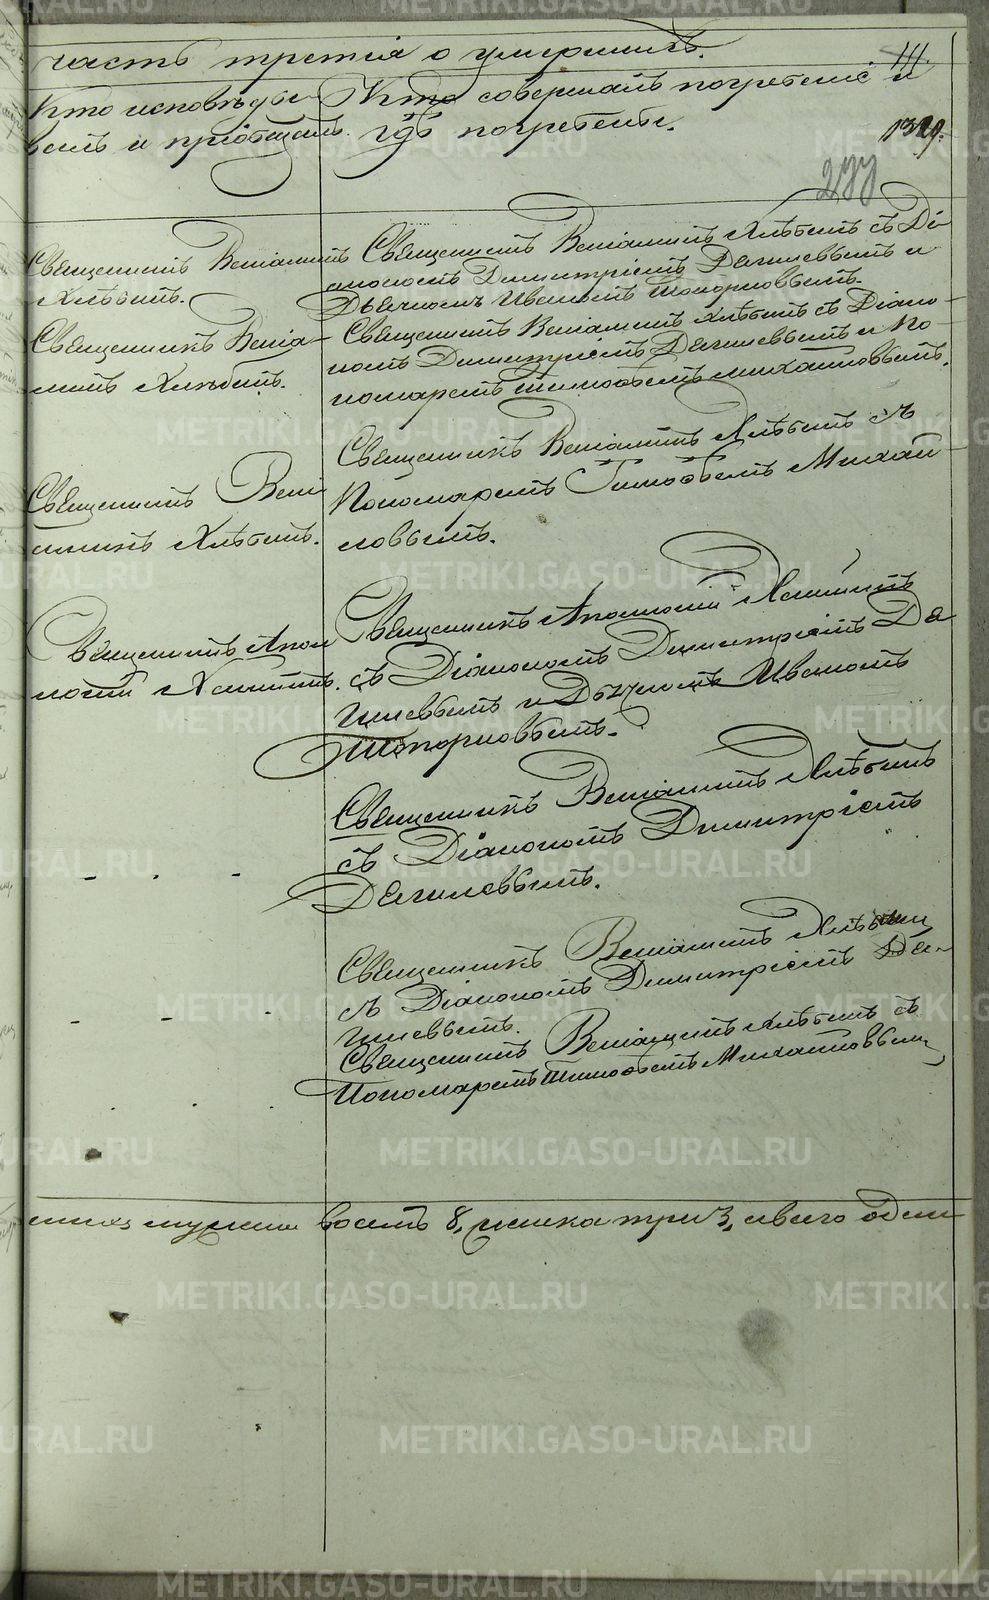 часть третія о умершихъ.
111.
Кто исповѣды-
валъ и пріобщалъ.
Кто совершалъ погребеніе и
гдѣ погребены.
1329.
277
Священникъ Веніаминъ
Хлѣбинъ.
Священникъ Веніаминъ Хлѣбинъ съ Ді-
акономъ Димитріемъ Дягилевымъ и
Дьячкомъ Иваномъ Топорковымъ.
Священникъ Веніа-
минъ Хлѣбинъ.
Священникъ Веніаминъ Хлѣбинъ съ Діако-
номъ Димитріемъ Дягилевымъ и По-
номаремъ Тимофѣемъ Михайловымъ.
Священникъ Вені
аминъ Хлѣбинъ.
Священникъ Веніаминъ Хлѣбинъ съ
Пономаремъ Тимофѣемъ Михай-
ловымъ.
Священникъ Апол
лоній
Священникъ Аполлоній
съ Діакономъ Димитріемъ Дя
гилевымъ и Дьячкомъ Иваномъ
Топорковымъ.
Священникъ Веніаминъ Хлѣбинъ
съ Діакономъ Димитріемъ
Дягилевымъ.
Священникъ Веніаминъ Хлѣбинъ
съ Діакономъ Димитріемъ Дя-
гилевымъ.
Священникъ Веніаминъ Хлѣбинъ съ
Пономаремъ Тимофѣемъ Михайловымъ
восемь 8, женска три 3, а всего один
METRIKI.GASO-URAL.RU